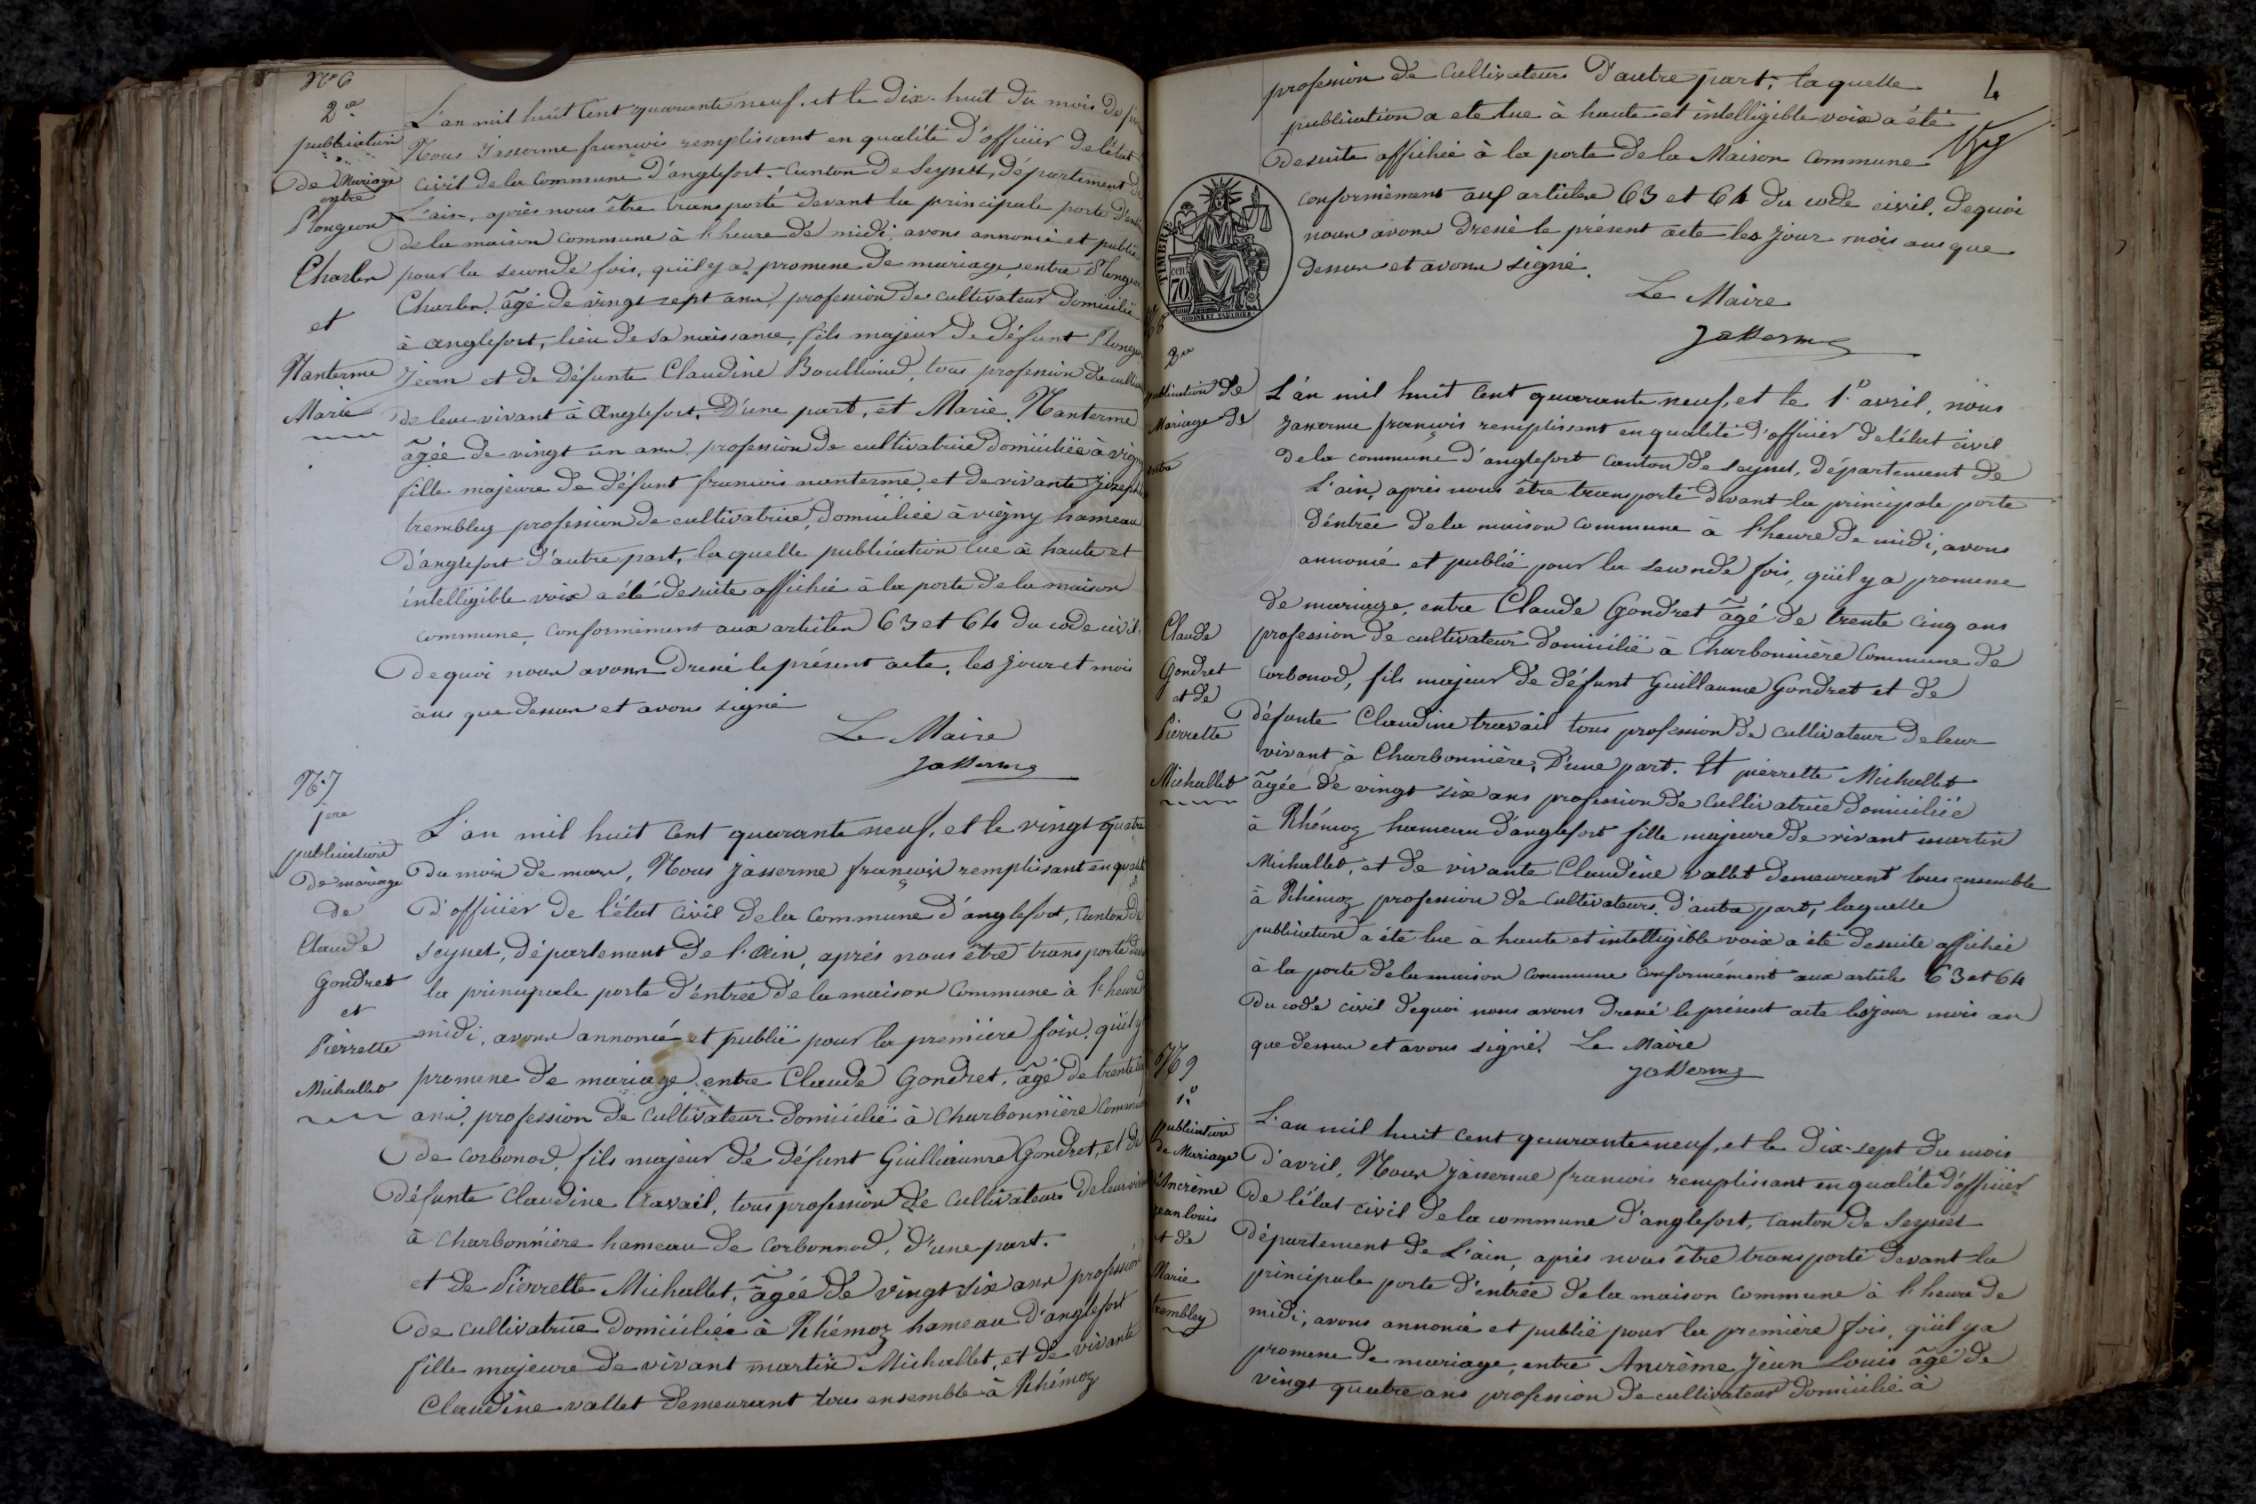 N° 6
2e
publication
de Mariage
entre
Plongeon
Charles
et
Nanterme
Marie
L'an mil huit Cent quarante neuf, et le Dix-huit du mois de
Nous Jasserme françois remplissant en qualité d'officier de l'état
civil de la Commune d'anglefort, Canton de Seyssel, département de
L'ain, après nous être transporté devant la principale porte d'en
de la maison commune à l'heure de midi, avons annoncé et publié
pour la seconde fois, qu'il y a promesse de mariage, entre Plongeon
Charles, âgé de vingt sept ans, profession de cultivateur domicilié
à anglefort, lieu de sa naissance, fils majeur de défunt Plongeon
Jean et de défunte Claudine Boullioud, tous profession de
de leur vivant à Anglefort. D'une part, et Marie Nanterme
âgée de vingt un ans profession de cultivatrice domiciliée à
fille majeure de défunt francois nanterme, et de vivante
trembley profession de cultivatrice, domiciliée à viegny hameau
d'anglefort d'autre part, laquelle publication lue à haute et
intelligible voix a été desuite affichée à la porte de la maison
commune, conformément aux articles 63 et 64 du code civil.
De quoi nous avons dressé le présent acte, les jour et mois
ans que dessus et avons signé
Le Maire
Jasserme
N° 7
1ere
publication
de mariage
de
Claude
Gondret
et
Pierrette
Michallet
L'an mil huit Cent quarante neuf, et le vingt quatre
Du mois de mars, Nous Jasserme françois remplissant en qualité
D'officier de l'état Civil de la Commune d'anglefort, Canton de
Seyssel, département de l'Ain, après nous être transporté devant
la principale porte d'entrée de la maison Commune à l'heure
midi, avons annoncé et publié pour la première fois, qu'il y a
promesse de mariage entre Claude Gondret, âgé de trente
ans, profession de Cultivateur domicilié à Charbonnière Commune
de Corbonod, fils majeur de défunt Guilliaume Gondret, et de
défunte Claudine travail, tous profession de Cultivateurs de leur vivant
à Charbonnière hameau de Corbonnod, d'une part.
et de Pierrette Michallet, âgée de vingt six ans profession
de cultivatrice domiciliée à Rhémoz hameau d'anglefort
fille majeure de vivant martin Michallet, et de vivante
Claudine vallet demeurant tous ensemble à Rhémoz
4
profession de Cultivateurs D'autre part, laquelle
publication a eté lue à haute et intelligible voix a été
desuite affichée à la porte de la Maison Commune
conformément aux articles 63 et 64 du code civil, dequoi
nous avons dressé le présent acte les jour mois ans que
dessus et avons signé.
Le Maire
Jasserme
TIMBRE
70
2e
publication de
Mariage de
entre
Claude
Gondret
et de
Pierrette
Michallet
L'an mil huit Cent quarante neuf, et le 1° avril, nous
Jasserme françois remplissant en qualité d'officier de l'état civil
de la commune d'anglefort canton de Seyssel, département de
L'ain, après nous être transporté devant la principale porte
d'entrée de la maison commune à l'heure de midi, avons
annoncé et publié pour la seconde fois, qu'il y a promesse
de mariage, entre Claude Gondret âgé de trente cinq ans
profession de cultivateur domicilié à Charbonnière Commune de
Corbonod, fils majeur de défunt Guillaume Gondret et de
défunte Claudine travail tous profession de cultivateur de leur
vivant à Charbonnière, D'une part. Et pierrette Michallet
âgée de vingt six ans profession de Cultivatrice domiciliée
à Rhémoz hameau d'anglefort fille majeure de vivant martin
Michallet, et de vivante Claudine vallet demeurant tous ensemble
à Rhémoz profession de Cultivateurs, d'autre part, laquelle
publication a été lue à haute et intelligible voix a été desuite affichée
à la porte de la maison commune conformément aux article 63 et 64
du code civil dequoi nous avons dressé le présent acte les jour mois an
que dessus et avons signé. Le Maire
Jasserme
N° 9
1°
publication
de Mariage
d'Ancrème
Jean louis
et de
Marie
trembley
L'an mil huit cent quarante neuf, et le Dix-sept du mois
d'avril, Nous Jasserme francois remplissant en qualité d'officier
de l'état civil de la commune d'anglefort, canton de Seyssel
Département de L'ain, après nous être transporté devant la
principale porte d'entrée de la maison Commune à l'heure de
midi, avons annoncé et publié pour la première fois, qu'il y a
promesse de mariage, entre Ancrème Jean Louis âgé de
vingt quatre ans profession de cultivateur domicilié à